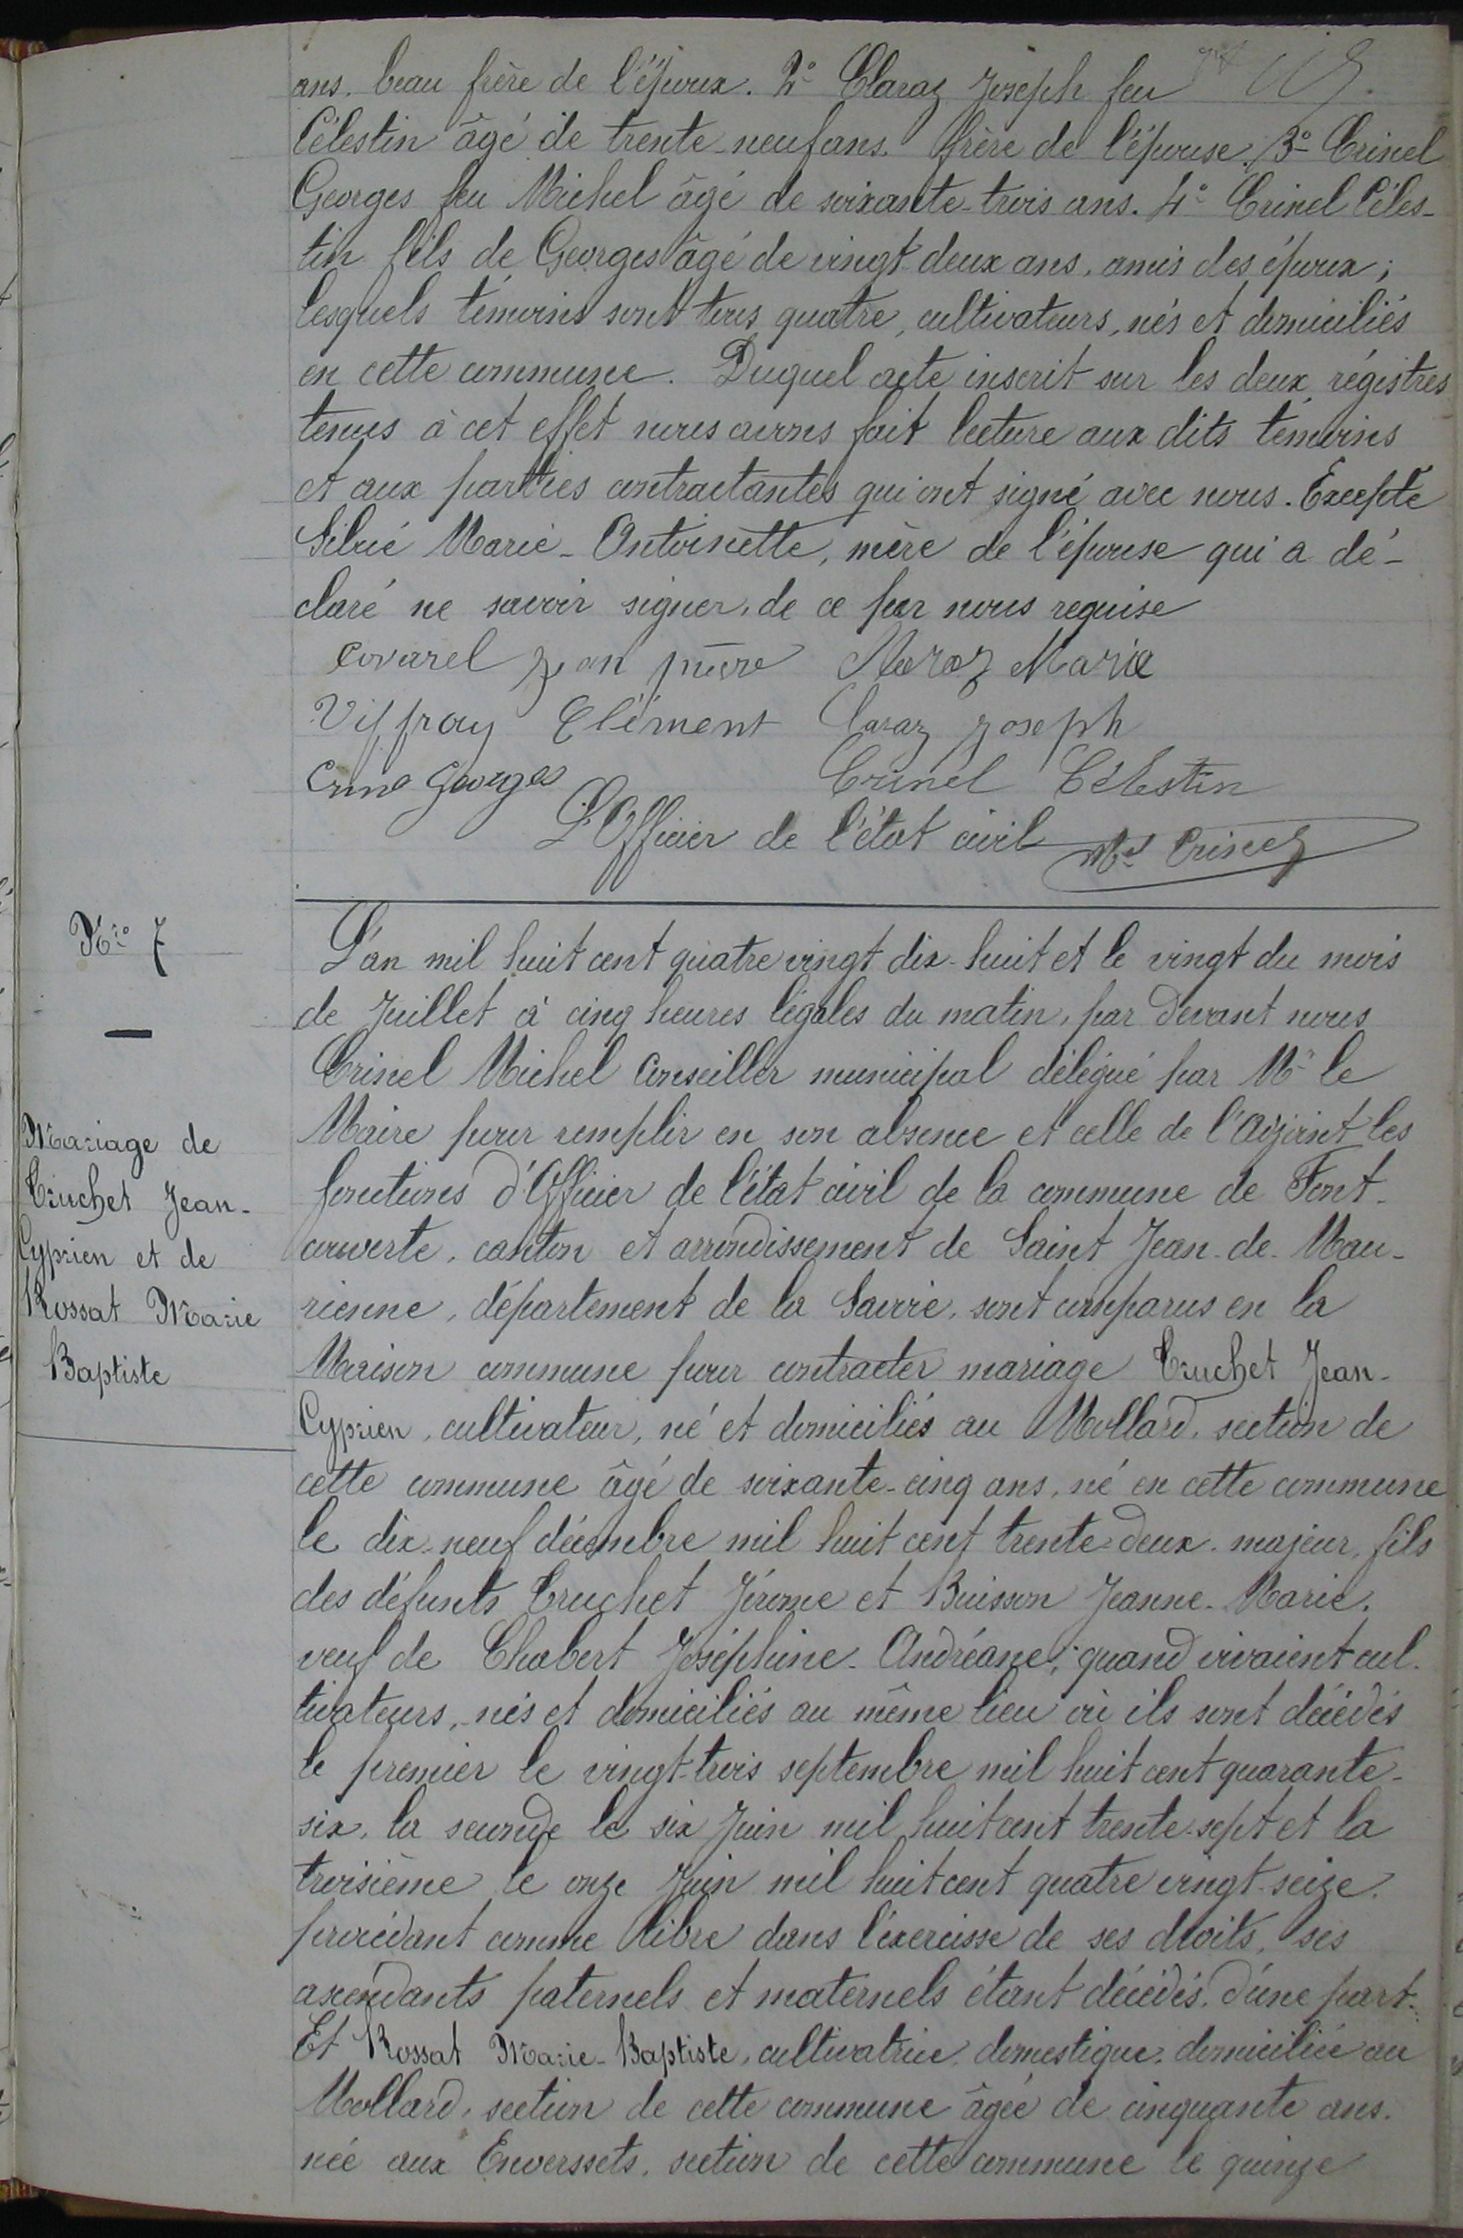 ans. beau frère de l'époux. 2° Claraz Joseph feu
Célestin âgé de trente-neuf ans. frère de l'épouse. 3° Crinel
Georges feu Michel âgé de soixante-trois ans. 4° Crinel Céles-
tin fils de Georges âgé de vingt-deux ans, amis des époux ;
lesquels témoins sont tous quatre, cultivateurs, nés et domiciliés
en cette commune. Duquel acte inscrit sur les deux régistres
tenus à cet effet nous avons fait lecture aux dits témoins
et aux parties contractantes qui ont signé avec nous. Excepté
Marie-Antoinette, mère de l'épouse qui a dé-
claré ne savoir signer, de ce par nous requise
Covarel Jean pierre Claraz Marie
Viffray Clément Claraz Joseph
Georges Crinel Célestin
L'Officier de l'état civil Crinel
N° 7
Mariage de
Truchet Jean-
Cyprien et de
Rossat Marie
Baptiste
L'an mil huit cent quatre vingt dix-huit et le vingt du mois
de Juillet à cinq heures légales du matin, par devant nous
Crinel Michel Conseiller municipal délégué par Mr le
Maire pour remplir en son absence et celle de l'Adjoint les
fonctions d'Officier de l'état civil de la commune de Font-
couverte, canton et arrondissement de Saint Jean-de-Mau-
rienne, département de la Savoie, sont comparus en la
Maison commune pour contracter mariage Truchet Jean-
Cyprien, cultivateur, né et domiciliés au Mollard, section de
cette commune âgé de soixante-cinq ans, né en cette commune
le dix-neuf décembre mil huit cent trente-deux. majeur, fils
des défunts Truchet Jérome et Buisson Jeanne-Marie.
veuf de Chabert Joséphine-Andréane; quand vivaient cul-
tivateurs, nés et domiciliés au même lieu où ils sont décédés
le premier le vingt-trois septembre mil huit cent quarante-
six, la seconde le six Juin mil huit cent trente-sept et la
troisième le onze Juin mil huit cent quatre vingt-seize.
procédant comme libre dans l'exercisse de ses droits, ses
ascendants paternels et maternels étant décédés, d'une part.
Et Rossat Marie-Baptiste, cultivatrice, domestique, domiciliée au
Mollard, section de cette commune âgée de cinquante ans.
née aux Enverssets, section de cette commune le quinze